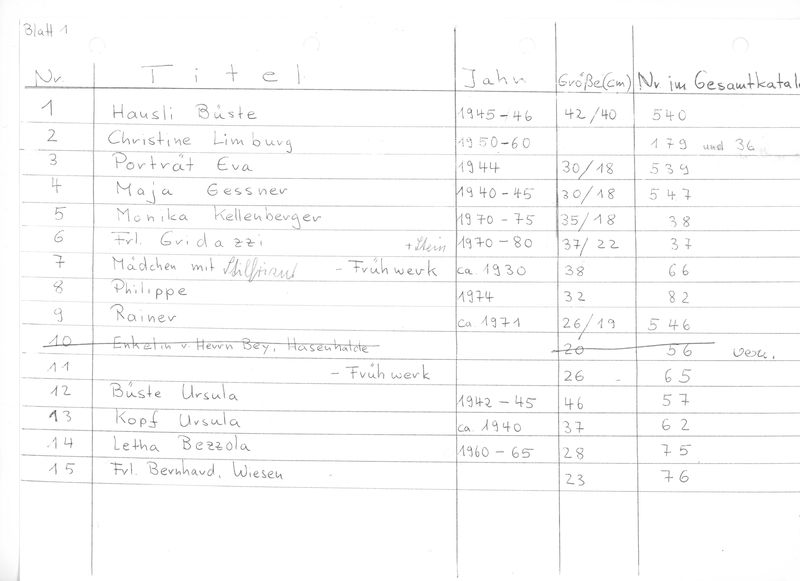 Blatt 1
Nr Titel Jahr Größe(cm) Nr im Gesamtkatal
1 Hausli Büste 1945-46 42/40 540
2 Christine Limburg 1950-60 179 und 36
3 Porträt Eva 1944 30/18 539
4 Maja Gessner 1940-45 30/18 547
5 Monika Kellenberger 1970-75 35/18 38
6 Frl. Gridazzi + Stein 1970-80 37/22 37
7 Mädchen mit - Frühwerk ca. 1930 38 66
8 Philippe 1974 32 82
9 Rainer ca 1971 26/19 546
10 Enkelin v. Herrn Bey, Hasenhalde 20 56
11 - Frühwerk 26 65
12 Büste Ursula 1942-45 46 57
13 Kopf Ursula ca. 1940 37 62
14 Letha Bezzola 1960-65 28 75
15 Frl. Bernhard, Wiesen 23 76